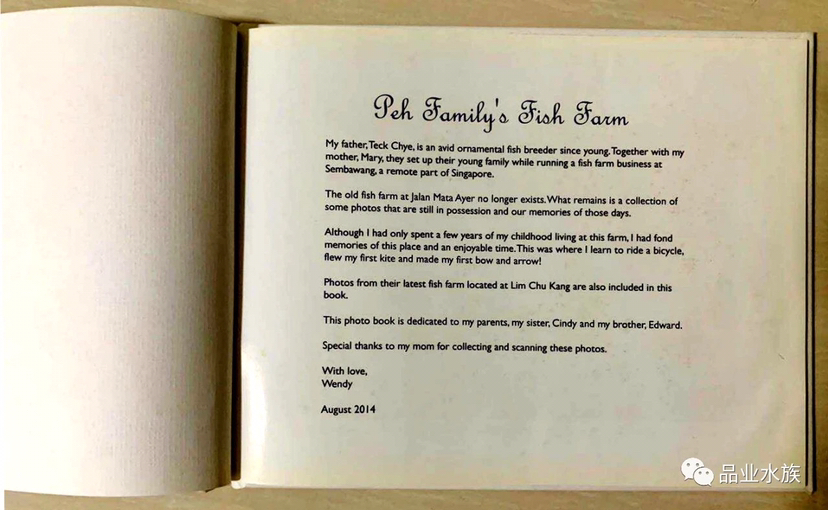 Peh Family's Fish Farm
My father, Teck Chye, is an avid ornamental fish breeder since young. Together with my
mother, Mary, they set up their young family while running a fish farm business at
Sembawang, a remote part of Singapore.
The old fish farm at Jalan Mata Ayer no longer exists. What remains is a collection of
some photos that are still in possession and our memories of those days.
Although I had only spent a few years of my childhood living at this farm, I had fond
memories of this place and an enjoyable time. This was where I learn to ride a bicycle,
flew my first kite and made my first bow and arrow!
Photos from their latest fish farm located at Lim Chu Kang are also included in this
book.
This photo book is dedicated to my parents, my sister, Cindy and my brother, Edward.
Special thanks to my mom for collecting and scanning these photos.
With love,
Wendy
August 2014
品业水族